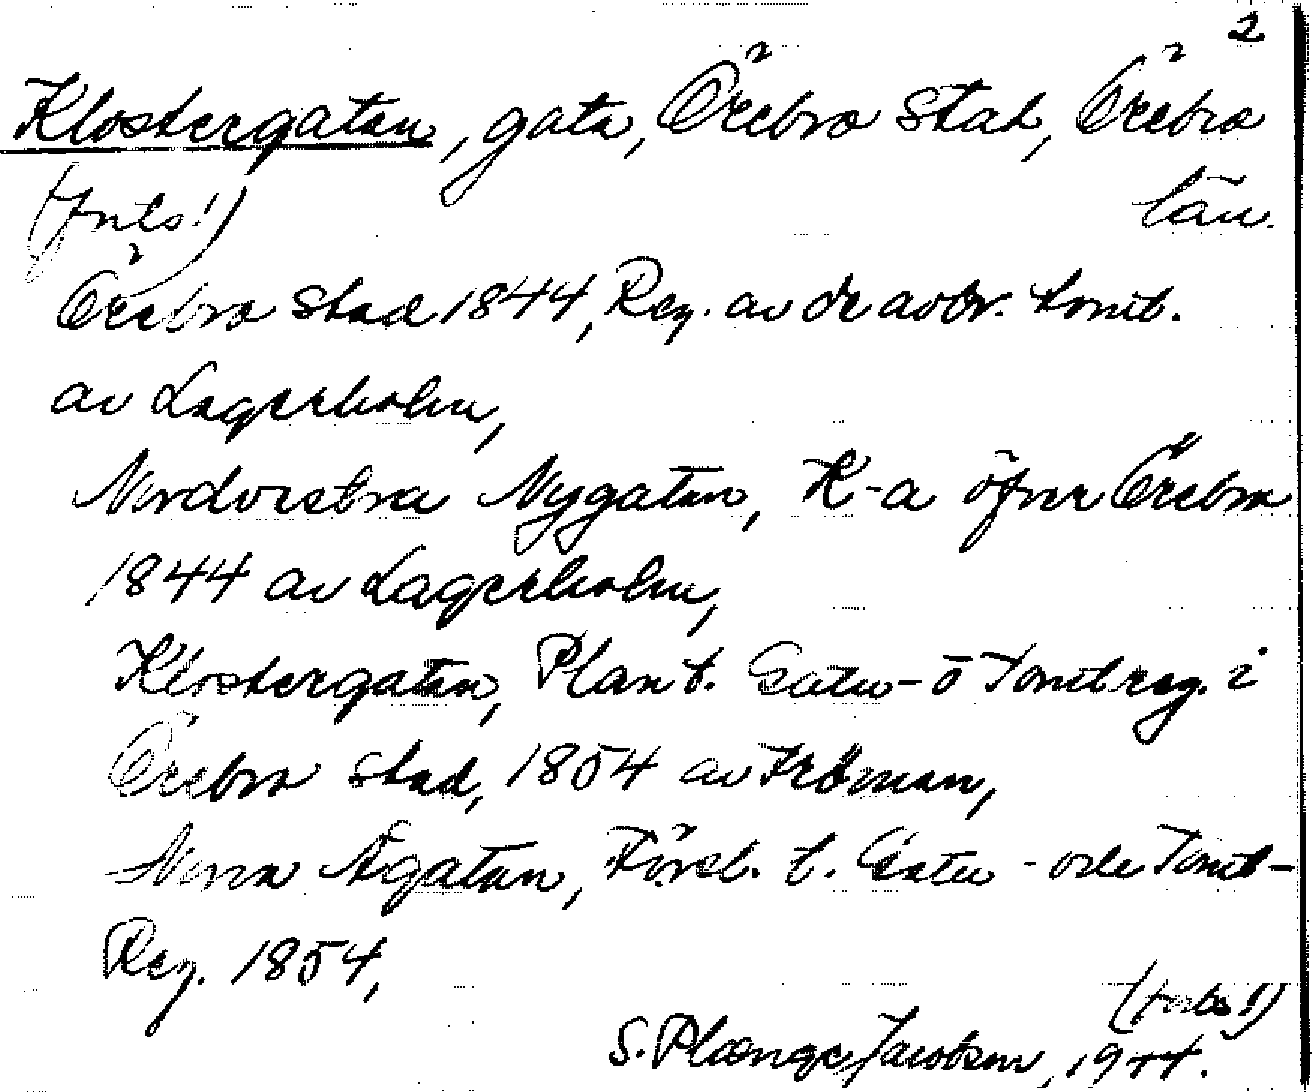 2
Klostergatan, gata, Örebro stad, Örebro
(forts!) län.
Örebro stad 1844, Reg. av de avbr. tomt.
av Lagerholm,
Nordvestra Nygatan, K-a öfver Örebro
1844 av Lagerholm,
Klostergatan, Plan t. Gatu- o Tomtreg. i
Örebro stad, 1854 av Fröman,
Norra Ågatan, Försl. t. Gatu- och Tomt-
Reg. 1854,
(forts!)
S. Plænge Jacobson, 1944.